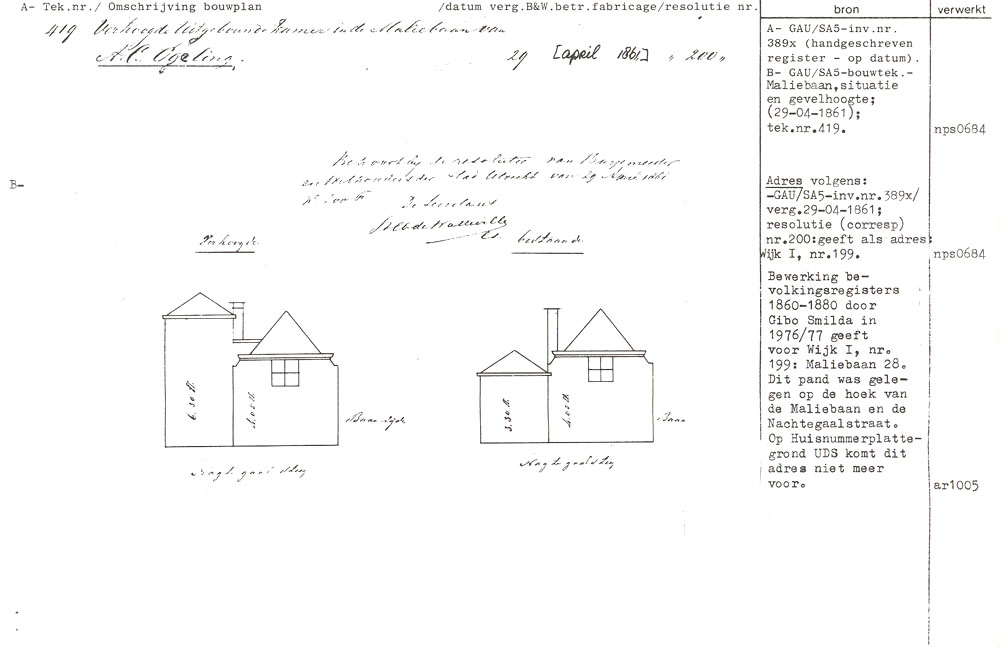 A- Tek.nr./ Omschrijving bouwplan /datum verg.B&W.betr.fabricage/resolutie nr.
bron
verwerkt
419 Verhoogde Uitgebouwde Kamer in de Maliebaan van
A.C. Ogeling. 29 [april 1861] „ 200 „
A- GAU/SA5-inv.nr.
389x (handgeschreven
register - op datum).
B- GAU/SA5-bouwtek.-
Maliebaan,situatie
en gevelhoogte;
(29-04-1861);
tek.nr.419.
nps0684
B-
de resolutie van Burgemeester
en Wethouders der Stad Utrecht van 29 April 1861
N° 200 F
De Secretaris
Verhoogde
bestaande
Adres volgens:
-GAU/SA5-inv.nr.389x/
verg.29-04-1861;
resolutie (corresp)
nr.200:geeft als adres:
Wijk I, nr.199.
nps0684
Bewerking be-
volkingsregisters
1860-1880 door
Gibo Smilda in
1976/77 geeft
voor Wijk I, nr.
199: Maliebaan 28.
Dit pand was gele-
gen op de hoek van
de Maliebaan en de
Nachtegaalstraat.
Op Huisnummerplatte-
grond UDS komt dit
adres niet meer
voor.
ar1005
6.30
4.05
Baan zijde
3.30
4.05
Baan
Nagtegaal steeg
Nagtegaalsteeg